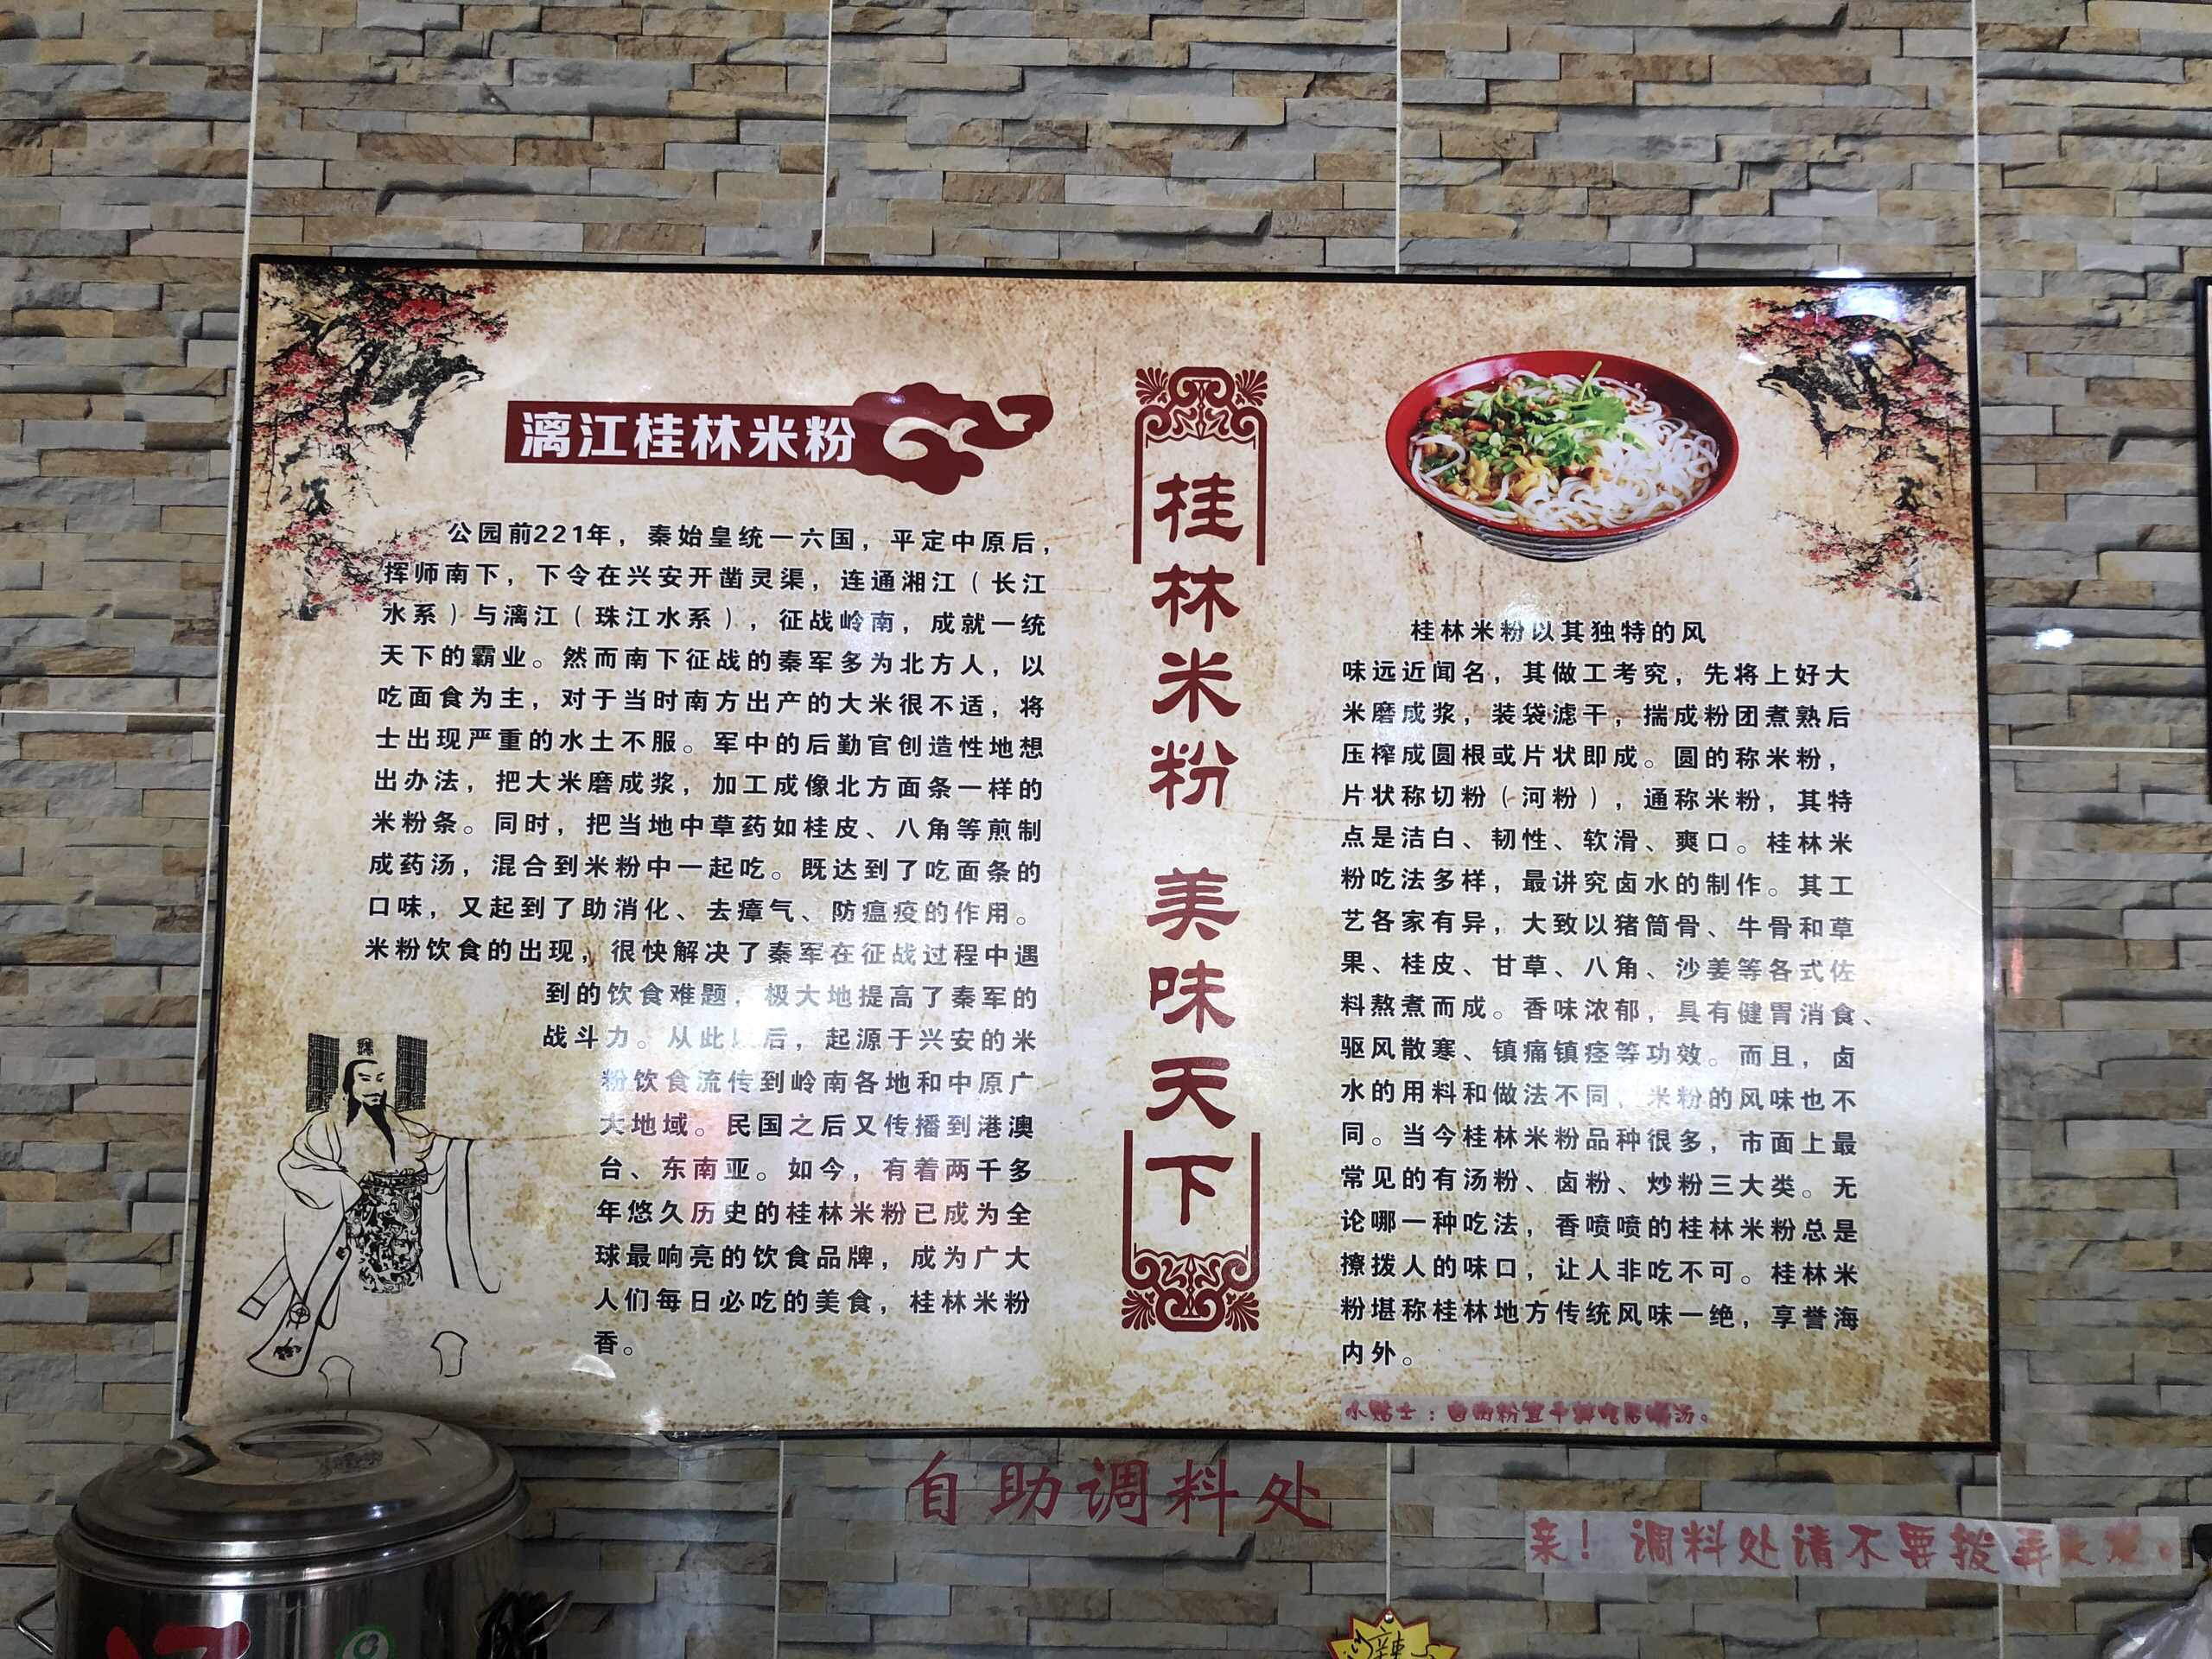 漓江桂林米粉
公园前221年，秦始皇统一六国，平定中原后，
挥师南下，下令在兴安开凿灵渠，连通湘江（长江
水系）与漓江（珠江水系），征战岭南，成就一统
天下的霸业。然而南下征战的秦军多为北方人，以
吃面食为主，对于当时南方出产的大米很不适，将
士出现严重的水土不服。军中的后勤官创造性地想
出办法，把大米磨成浆，加工成像北方面条一样的
米粉条。同时，把当地中草药如桂皮、八角等煎制
成药汤，混合到米粉中一起吃。既达到了吃面条的
口味，又起到了助消化、去瘴气、防瘟疫的作用。
米粉饮食的出现，很快解决了秦军在征战过程中遇
到的饮食难题，极大地提高了秦军的
战斗力。从此以后，起源于兴安的米
粉饮食流传到岭南各地和中原广
大地域。民国之后又传播到港澳
台、东南亚。如今，有着两千多
年悠久历史的桂林米粉已成为全
球最响亮的饮食品牌，成为广大
人们每日必吃的美食，桂林米粉
香。
桂林米粉 美味天下
桂林米粉以其独特的风
味远近闻名，其做工考究，先将上好大
米磨成浆，装袋滤干，揣成粉团煮熟后
压榨成圆根或片状即成。圆的称米粉，
片状称切粉（河粉），通称米粉，其特
点是洁白、韧性、软滑、爽口。桂林米
粉吃法多样，最讲究卤水的制作。其工
艺各家有异，大致以猪筒骨、牛骨和草
果、桂皮、甘草、八角、沙姜等各式佐
料熬煮而成。香味浓郁，具有健胃消食、
驱风散寒、镇痛镇痉等功效。而且，卤
水的用料和做法不同，米粉的风味也不
同。当今桂林米粉品种很多，市面上最
常见的有汤粉、卤粉、炒粉三大类。无
论哪一种吃法，香喷喷的桂林米粉总是
撩拨人的味口，让人非吃不可。桂林米
粉堪称桂林地方传统风味一绝，享誉海
内外。
小贴士：
自助调料处
亲！调料处请不要拨弄
辣